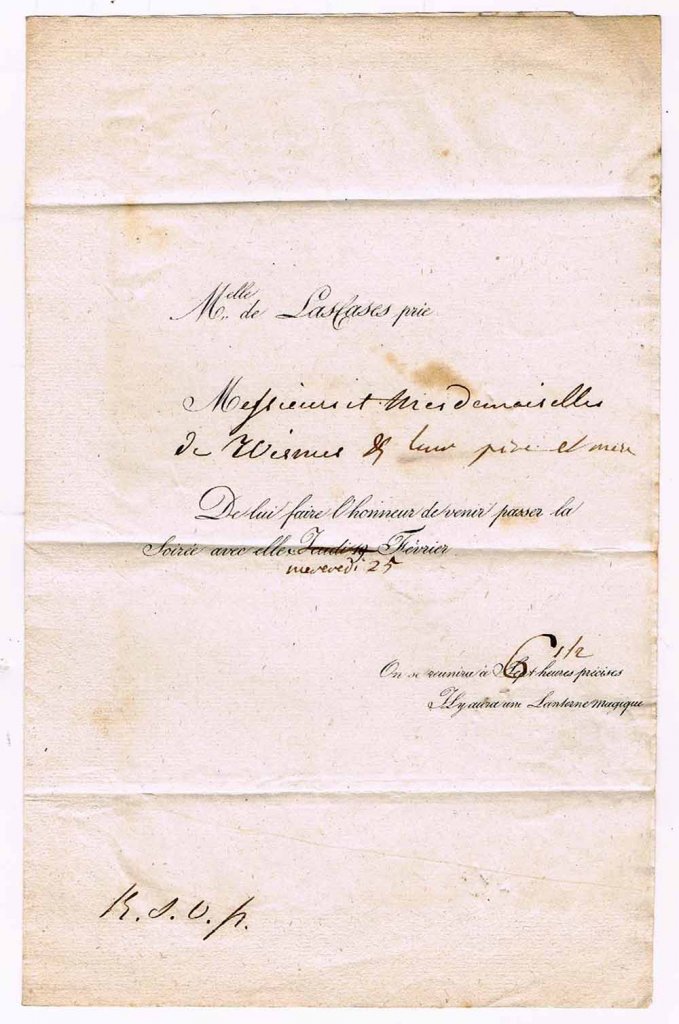 M.elle de LasCases prie
Messieurs et Mesdemoiselles
de Wismes & leur père et mère
De lui faire l'honneur de venir passer la
Soirée avec elle Jeudi 19 Février
mercredi 25
On se réunira à Sept heures précises
6 1/2
Il y aura une Lanterne magique
R. S. V. p.